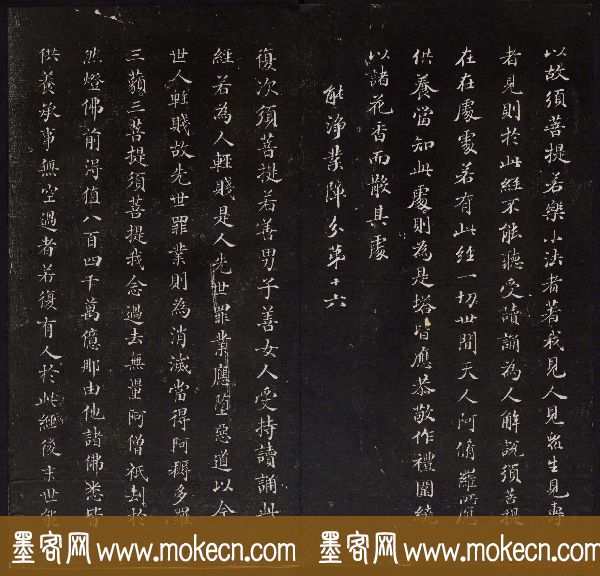 以故須菩提若樂小法者著我見人見眾生見壽
者見則於此經不能聽受讀誦為人解說須菩提
在在處處若有此經一切世間天人阿脩羅所應
供養當知此處則為是塔皆應恭敬作禮圍繞
以諸花香而散其處
能淨業障分第十六
復次須菩提若善男子善女人受持讀誦此
經若為人輕賤是人先世罪業應墮惡道以今
世人輕賤故先世罪業則為消滅當得阿耨多羅
三藐三菩提須菩提我念過去無量阿僧祇劫於
然燈佛前得值八百四千萬億那由他諸佛悉皆
供養承事無空過者若復有人於此經後末世能
墨客网 www.mokecn.com 墨客网 www.mokecn.com